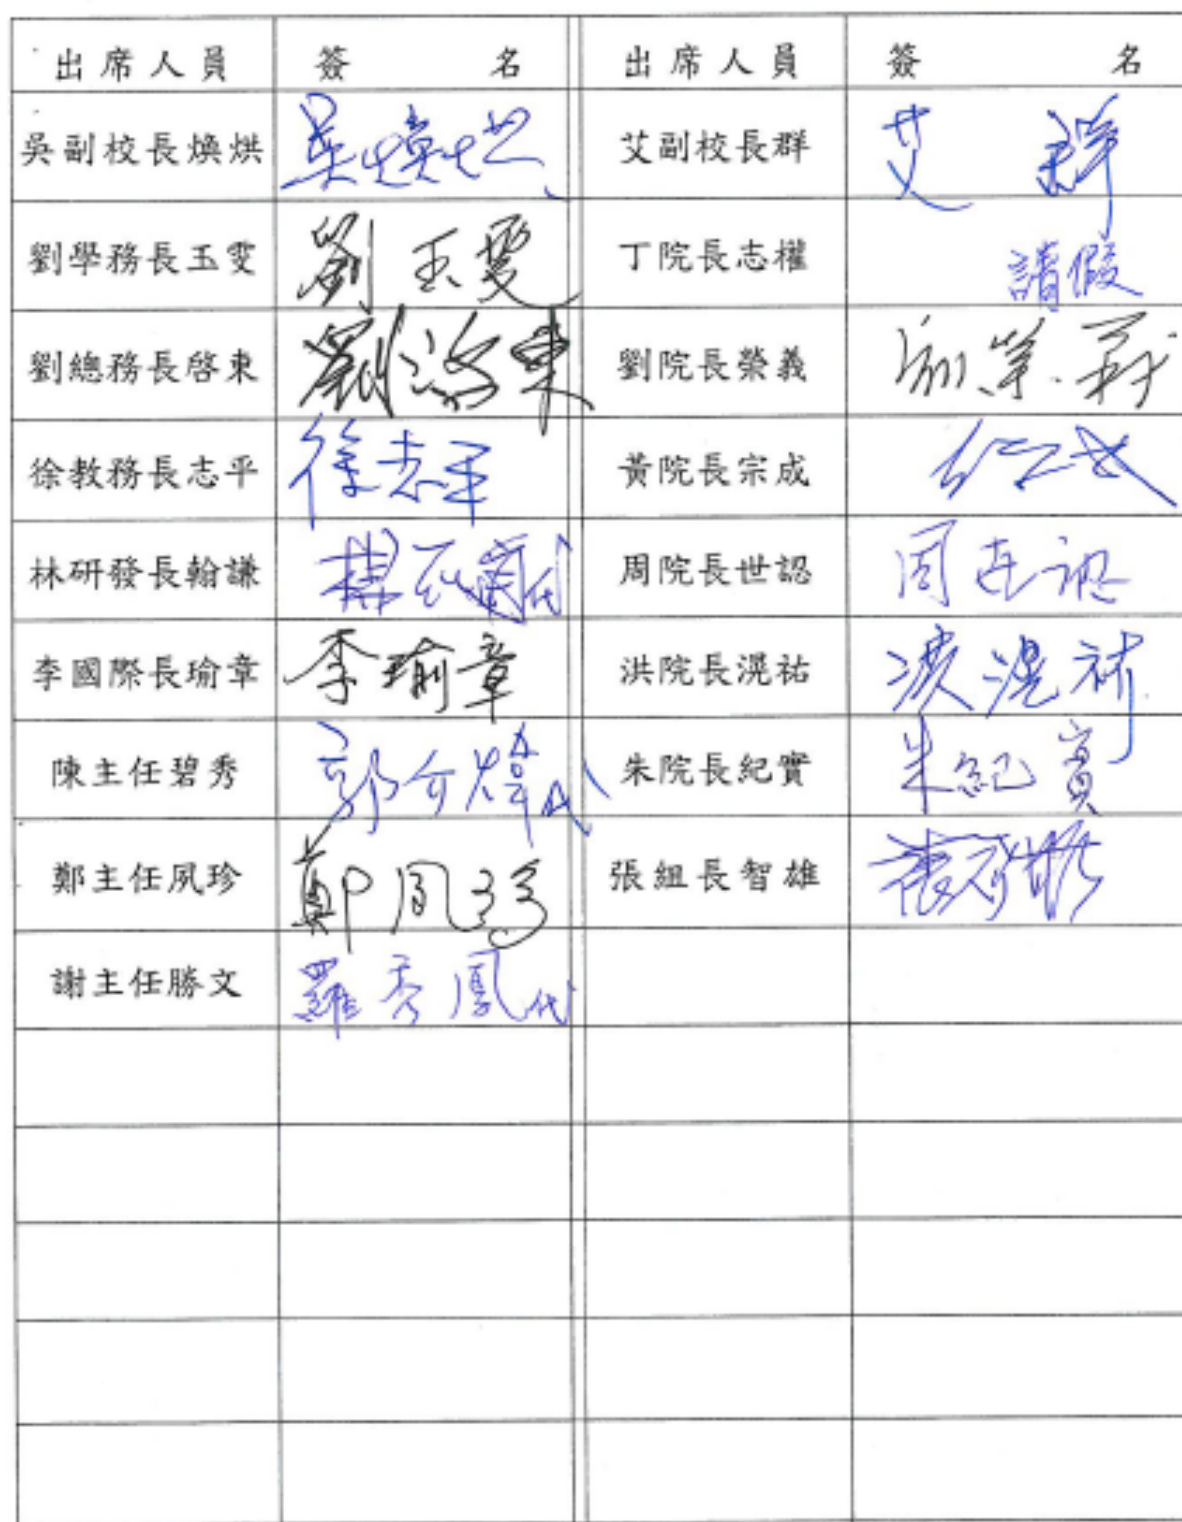 出席人員 簽名 出席人員 簽名
吳副校長煥烘 吳煥烘 艾副校長群 艾群
劉學務長玉雯 劉玉雯 丁院長志權 請假
劉總務長啓東 劉啓東 劉院長榮義 劉榮義
徐教務長志平 徐志平 黃院長宗成
林研發長翰謙 代 周院長世認 周世認
李國際長瑜章 李瑜章 洪院長滉祐 洪滉祐
陳主任碧秀 郭介煒代 朱院長紀實 朱紀實
鄭主任夙珍 鄭夙珍 張組長智雄
謝主任勝文 羅秀鳳代